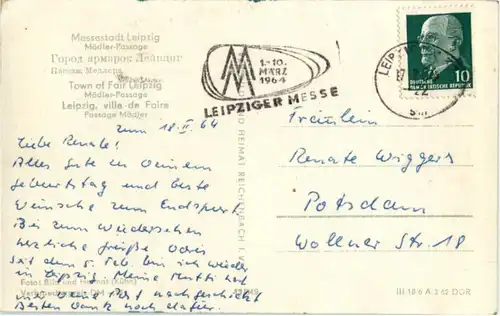 Messestadt Leipzig
Mädler-Passage
Город ярмарок Лейпциг
Пассаж Медлера
Town of Fair Leipzig
Mädler-Passage
Leipzig, ville de Foire
Passage Mädler
zum 18. II 64
Liebe Renate!
Alles Gute zu Deinem
Geburtstag und beste
Wünsche zum Endspurt.
Bis zum Wiedersehen
herzliche Grüße
seit dem 5. Feb. bin ich wieder
in Leipzig. Meine Mutti hat
mir Post nachgeschickt
Besten Dank noch dafür.
Foto: Bild und Heimat (Kühn)
1.-10.
MÄRZ
1964
LEIPZIGER MESSE
LEIPZIG
DEUTSCHE
DEMOKRATISCHE REPUBLIK
10
Fräulein
Renate Wiggers
Potsdam
Wollner Str. 18
UND HEIMAT REICHENBACH I. V.
III 18 6 A 3 62 DDR